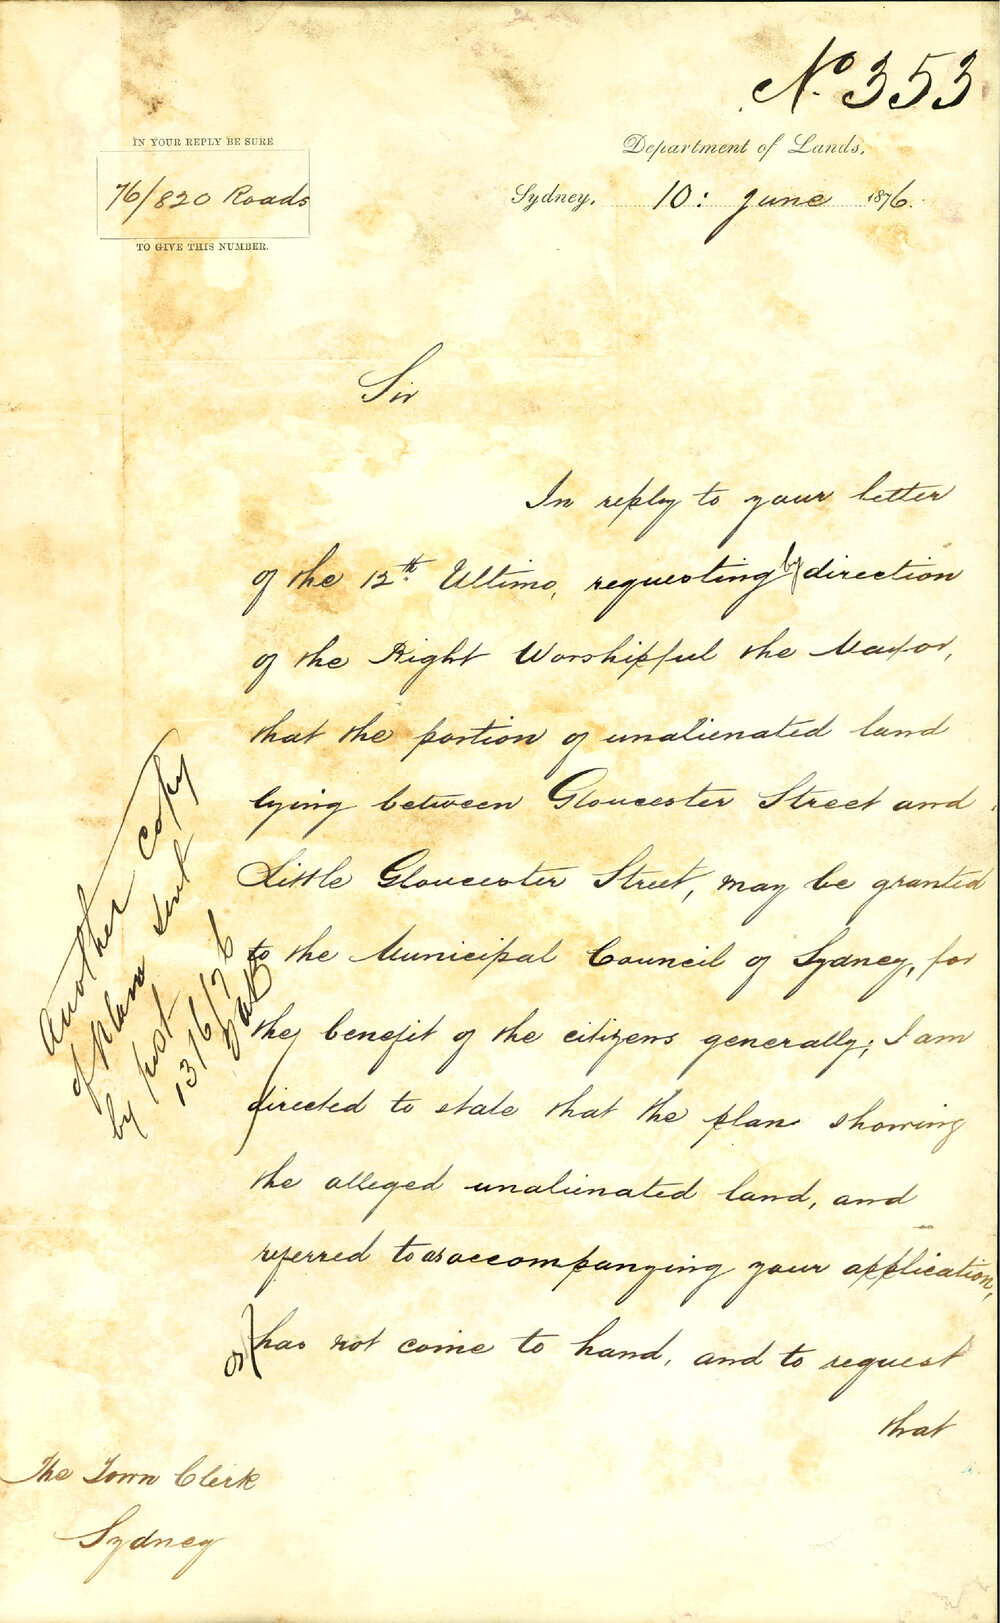 No 353
IN YOUR REPLY BE SURE
76/820 Roads
TO GIVE THIS NUMBER.
Department of Lands,
Sydney, 10: June 1876.
Sir
In reply to your letter
of the 12th. Ultimo, requesting by direction
of the Right Worshipful the Mayor,
that the portion of unalienated land
lying between Gloucester Street and
Little Gloucester Street, may be granted
to the Municipal Council of Sydney, for
the benefit of the citizens generally; I am
directed to state that the plan showing
the alleged unalienated land, and
referred to as accompanying your application,
has not come to hand, and to request
that
Another copy
of plan sent
by post
13/6/76
The Town Clerk
Sydney